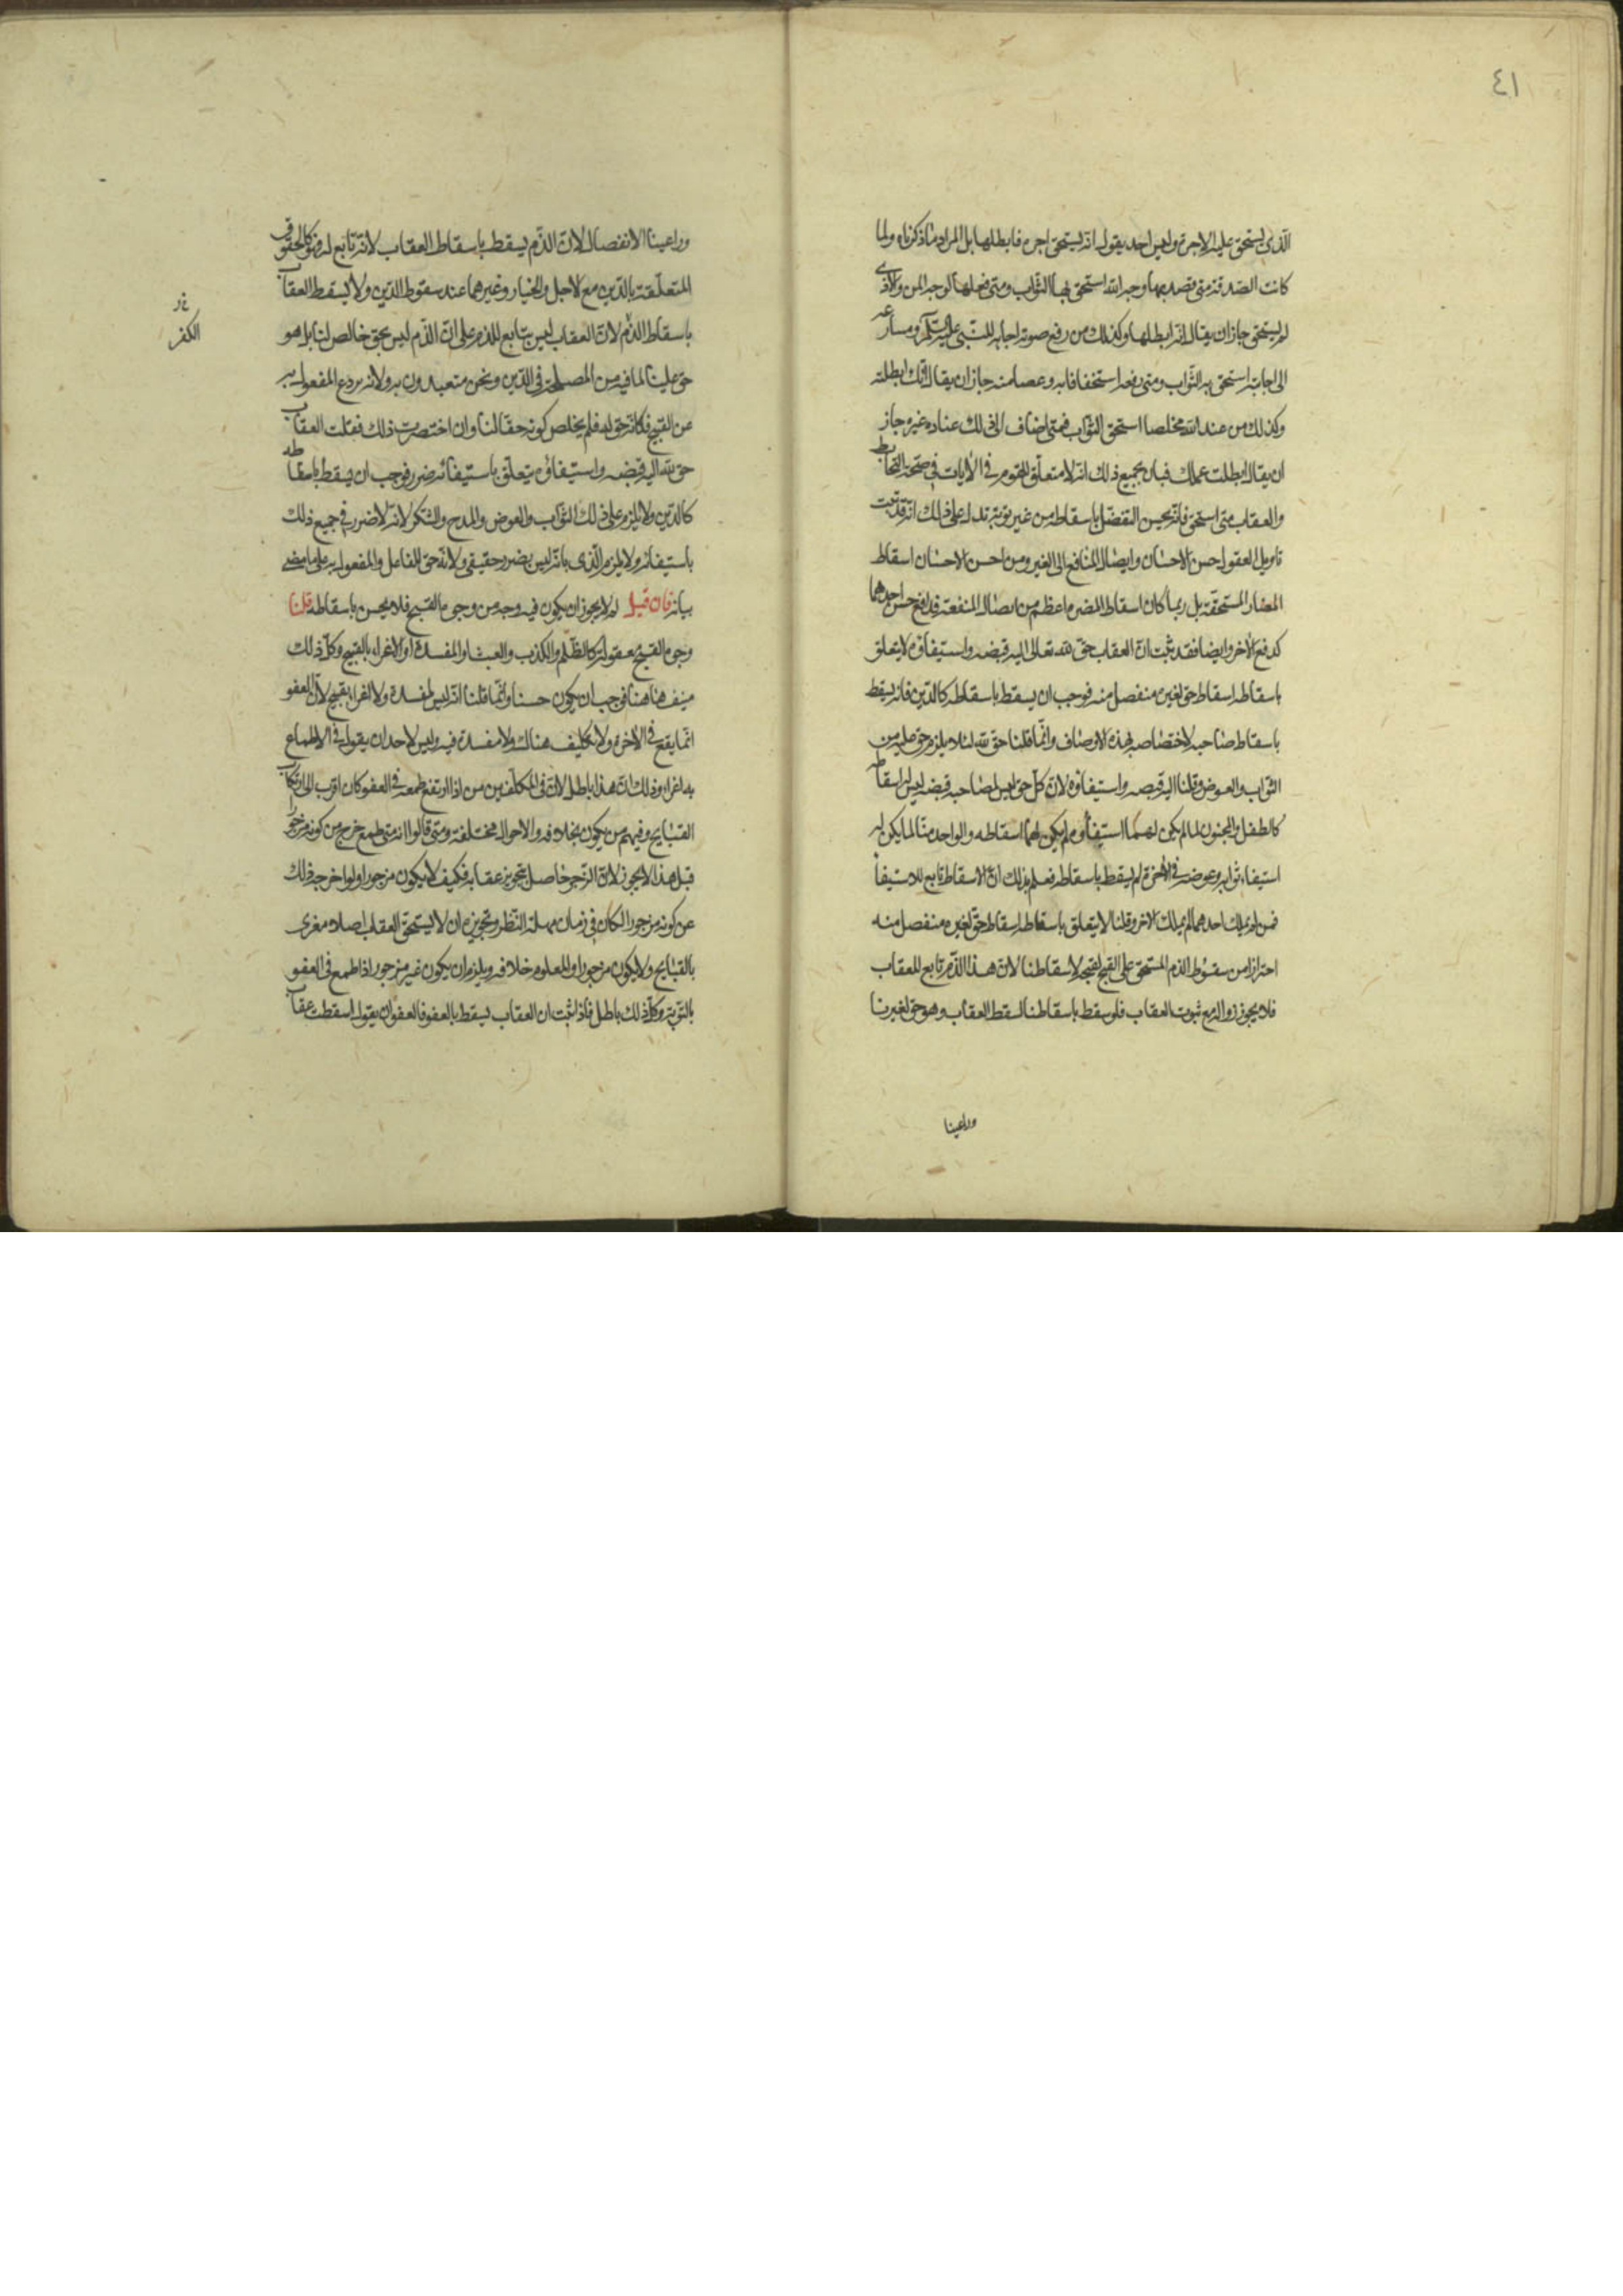 ٤١
الذي استحق عليه الاجرة وليس احد يقول انه يستحق اجره فابطلها بل المراد ما ذكرناه ولما
كانت الصدقة متى قصد بها وجه الله استحق بها الثواب ومتى فعلها لوجه المن والاذى
لم يستحق جاز ان يقال انه ابطلها وكذلك من رفع صوته اجابة للنبي عليه السلم ومسارعة
الى اجابته استحق به الثواب ومتى رفعه استخفافا به وعصيا منه جاز ان يقال انك ابطلته
وكذلك من عند الله مخلصا استحق الثواب فمتى اضاف الى ذلك عناده غيره جاز
ان يقال ابطلت عملك فبان بجميع ذلك انه لا متعلق للقوم في الايات في صحة التحابط
والعقاب متى استحق فانه يحسن التفضل باسقاطه من غير توبة تدل على ذلك انه قد ثبت
تاويل العقول حسن الاحسان وايصال المنافع الى الغير ومن احسن الاحسان اسقاط
المضار المستحقة بل ربما كان اسقاط المضر ما اعظم من ايصال المنفعة فدافع حسن احدهما
كدفع الاخر وايضا فقد ثبت ان العقاب حق لله تعالى اليه قبضه واستيفاؤه لا يتعلق
باسقاطه اسقاط حق لغيره منفصل منه فوجب ان يسقط باسقاطه كالدين فانه يسقط
باسقاط صاحبه لاختصاصه بهذه الاوصاف وانما قلنا حق لله لئلا يلزم حق عليه من
الثواب والعوض وقلنا اليه قبضه واستيفاؤه لان كل حق ليس لصاحبه قبضه ليس له اسقاطه
كالطفل والمجنون لما لم يكن لهما استيفاؤه لم يكن لهما اسقاطه والواحد منا لما لم يكن له
استيفاء ثوابه وعوضه في الاخرة لم يسقط باسقاطه فعلم بذلك ان الاسقاط تابع للاستيفاء
فمن لم يملك احدهما لم يملك الاخر وقلنا لا يتعلق باسقاطه اسقاط حق لغيره منفصل منه
احترازا من سقوط الذم المستحق على القبيح لقبحه لاسقاطنا لان هذا الذم تابع للعقاب
فلا يجوز زواله مع ثبوت العقاب فلو سقط باسقاطنا لسقط العقاب وهو حق لغيرنا
وراعينا
وراعينا الانفصال لان الذم يسقط باسقاط العقاب لانه تابع له فهو كالحقوق
المتعلقة بالدين مع لاجل والخيار وغيرهما عند سقوط الدين ولا يسقط العقاب
باسقاط الذم لان العقاب ليس بتابع للذم على ان الذم ليس بحق خالص لنا بل هو
حق علينا لما فيه من المصلحة في الدين ونحن متعبدون به ولانه يردع المفعول به
عن القبيح فكانه حق له فلم يخلص كونه حقا لنا وان اختصرت ذلك فقلت العقاب
حق لله اليه قبضه واستيفاؤه يتعلق باستيفائه ضرر فوجب ان يسقط باسقاطه
كالدين ولا يلزم على ذلك الثواب والعوض والمدح والشكر لانه لا ضرر في جميع ذلك
باستيفائه ولا يلزم الذي بانه ليس بضرر حقيقي لانه حق للفاعل والمفعول به على ما مضى
بيانه فان قيل لم لا يجوز ان يكون فيه وجه من وجوه القبح فلا يحسن باسقاطه قلنا
وجوه القبح معقولة كالظلم والكذب والعبث او المفسدة او الاغراء بالقبيح وكل ذلك
منتف هاهنا فوجب ان يكون حسنا وانما قلنا انه ليس لمفسدة ولا لغراء بقبيح لان العفو
انما يقع في الاخرة ولا تكليف هناك ولا مفسدة فيه وليس لاحد ان يقول في الاطماع
به اغراء وذلك ان هذا باطل لان في المكلفين من اذا ارتفع طمعه في العفو كان اقرب الى ارتكاب
القبايح وفيهم من يكون بخلافه والاحوال مختلفة ومتى قالوا انه متى طمع خرج من كونه مزجورا
قيل هذا لا يجوز لان الزجر حاصل بتجويز عقابه فكيف لا يكون مزجورا ولو اخرجه ذلك
عن كونه مزجورا لكان في زمان مهلة النظر وتجويزه ان لا يستحق العقاب اصلا مغرى
بالقبايح ولا يكون مزجورا والمعلوم خلافه ويلزم ان يكون غير مزجور اذا طمع في العفو
بالتوبة وكل ذلك باطل فاذا ثبت ان العقاب يسقط بالعفو فالعفو ان يقول اسقطت عقاب
الكفر